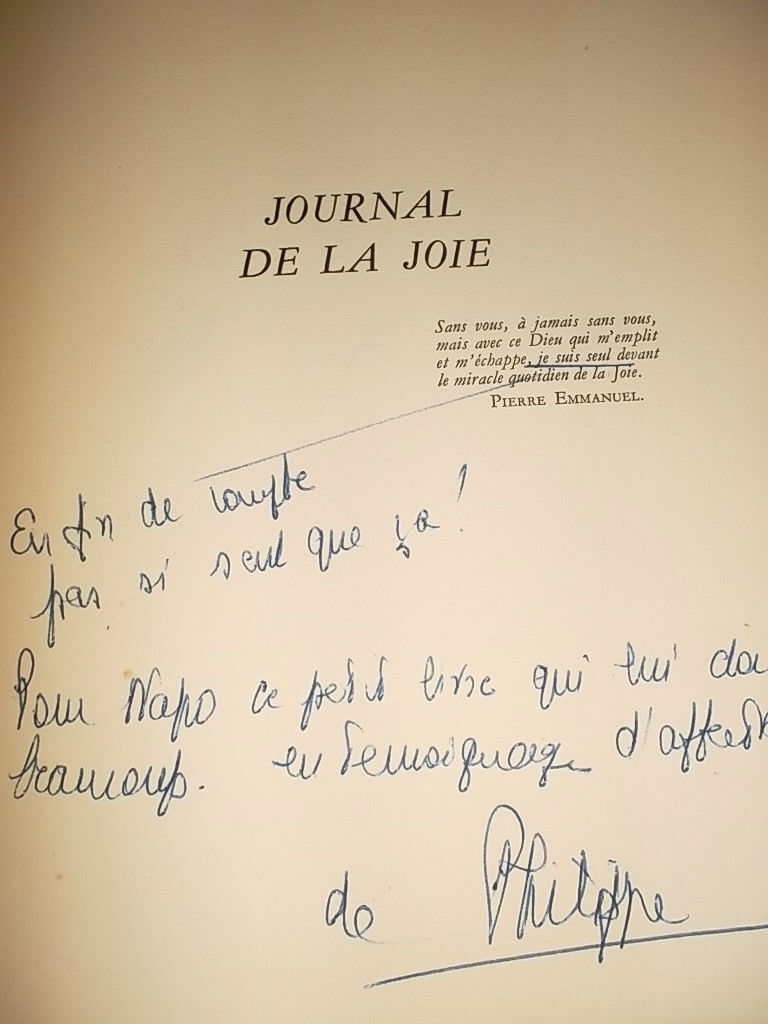 JOURNAL
DE LA JOIE
Sans vous, à jamais sans vous,
mais avec ce Dieu qui m'emplit
et m'échappe, je suis seul devant
le miracle quotidien de la Joie.
PIERRE EMMANUEL.
En fin de compte
pas si seul que ça !
Pour Napo ce petit livre qui lui
beaucoup. en témoignage
de Philippe